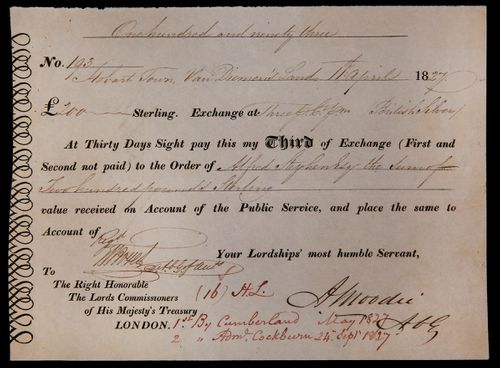 One hundred and ninety three
No. 193
Hobart Town, Van Diemen's Land 11th April 1837
£200 Sterling. Exchange at Three British Silver
At Thirty Days Sight pay this my Third of Exchange (First and
Second not paid) to the Order of Alfred Stephen Esq the Sum of
Two hundred pounds Sterling
value received on Account of the Public Service, and place the same to
Account of
Your Lordships' most humble Servant,
To
The Right Honorable
The Lords Commissioners
of His Majesty's Treasury
LONDON.
(16) H.L.
A Moodie
A C G
1st By Cumberland May 1837
2 " Adml. Cockburn 24 Sept 1837